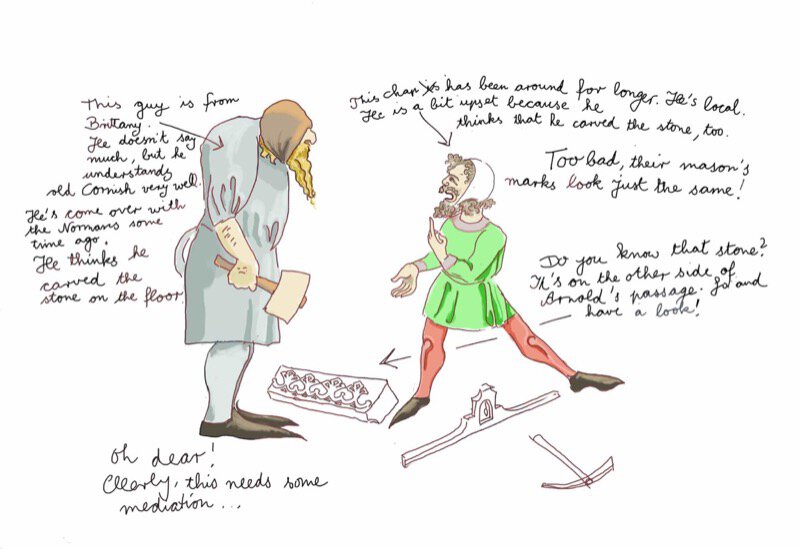 This guy is from
Brittany.
He doesn't say
much, but he
understands
old Cornish very well.
He's come over with
the Normans some
time ago.
He thinks he
carved the
stone on the floor.
This chap is has been around for longer. He's local.
He is a bit upset because he
thinks that he carved the stone, too.
Too bad, their mason's
marks look just the same!
Do you know that stone?
It's on the other side of
Arnold's passage. Go and
have a look!
Oh dear!
Clearly, this needs some
mediation...